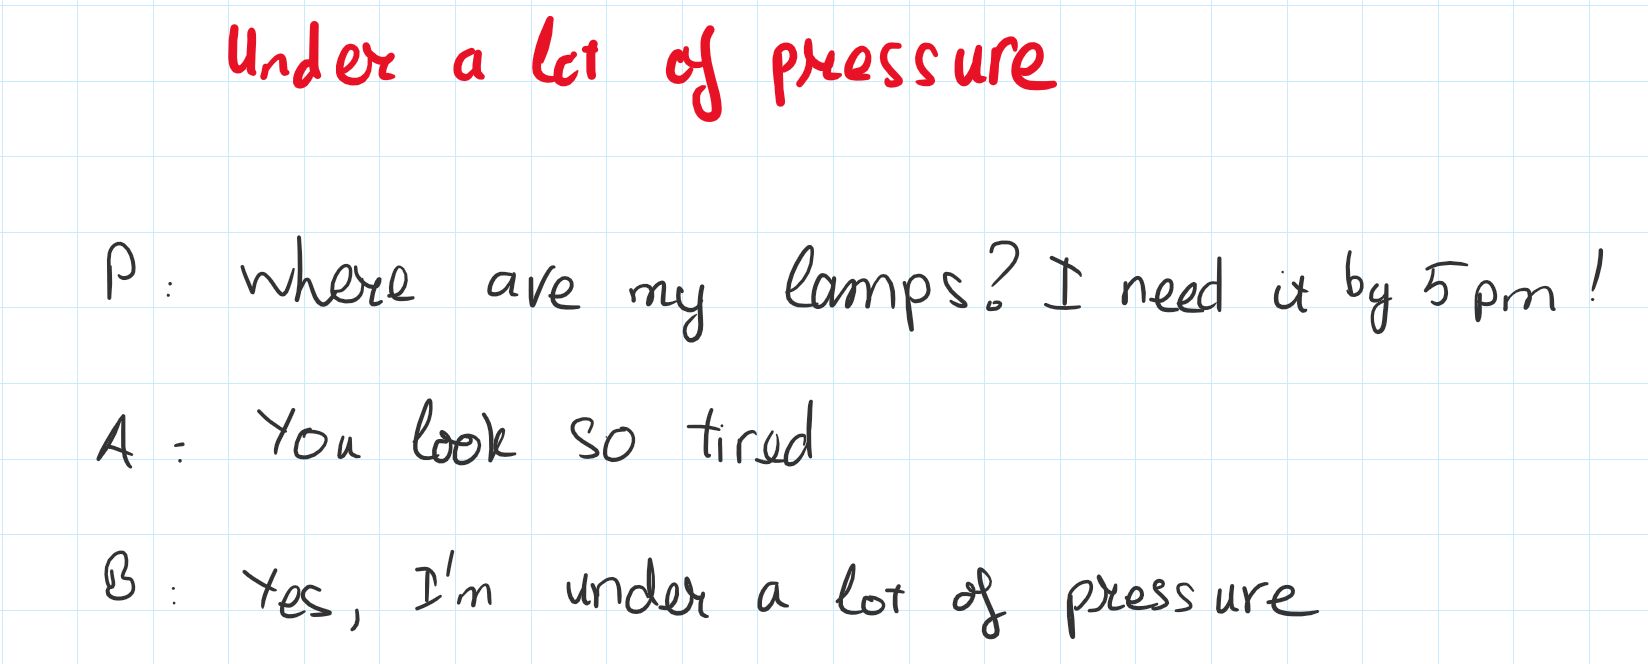 Under a lot of pressure
P: where are my lamps? I need it by 5pm!
A: You look so tired
B: Yes, I'm under a lot of pressure